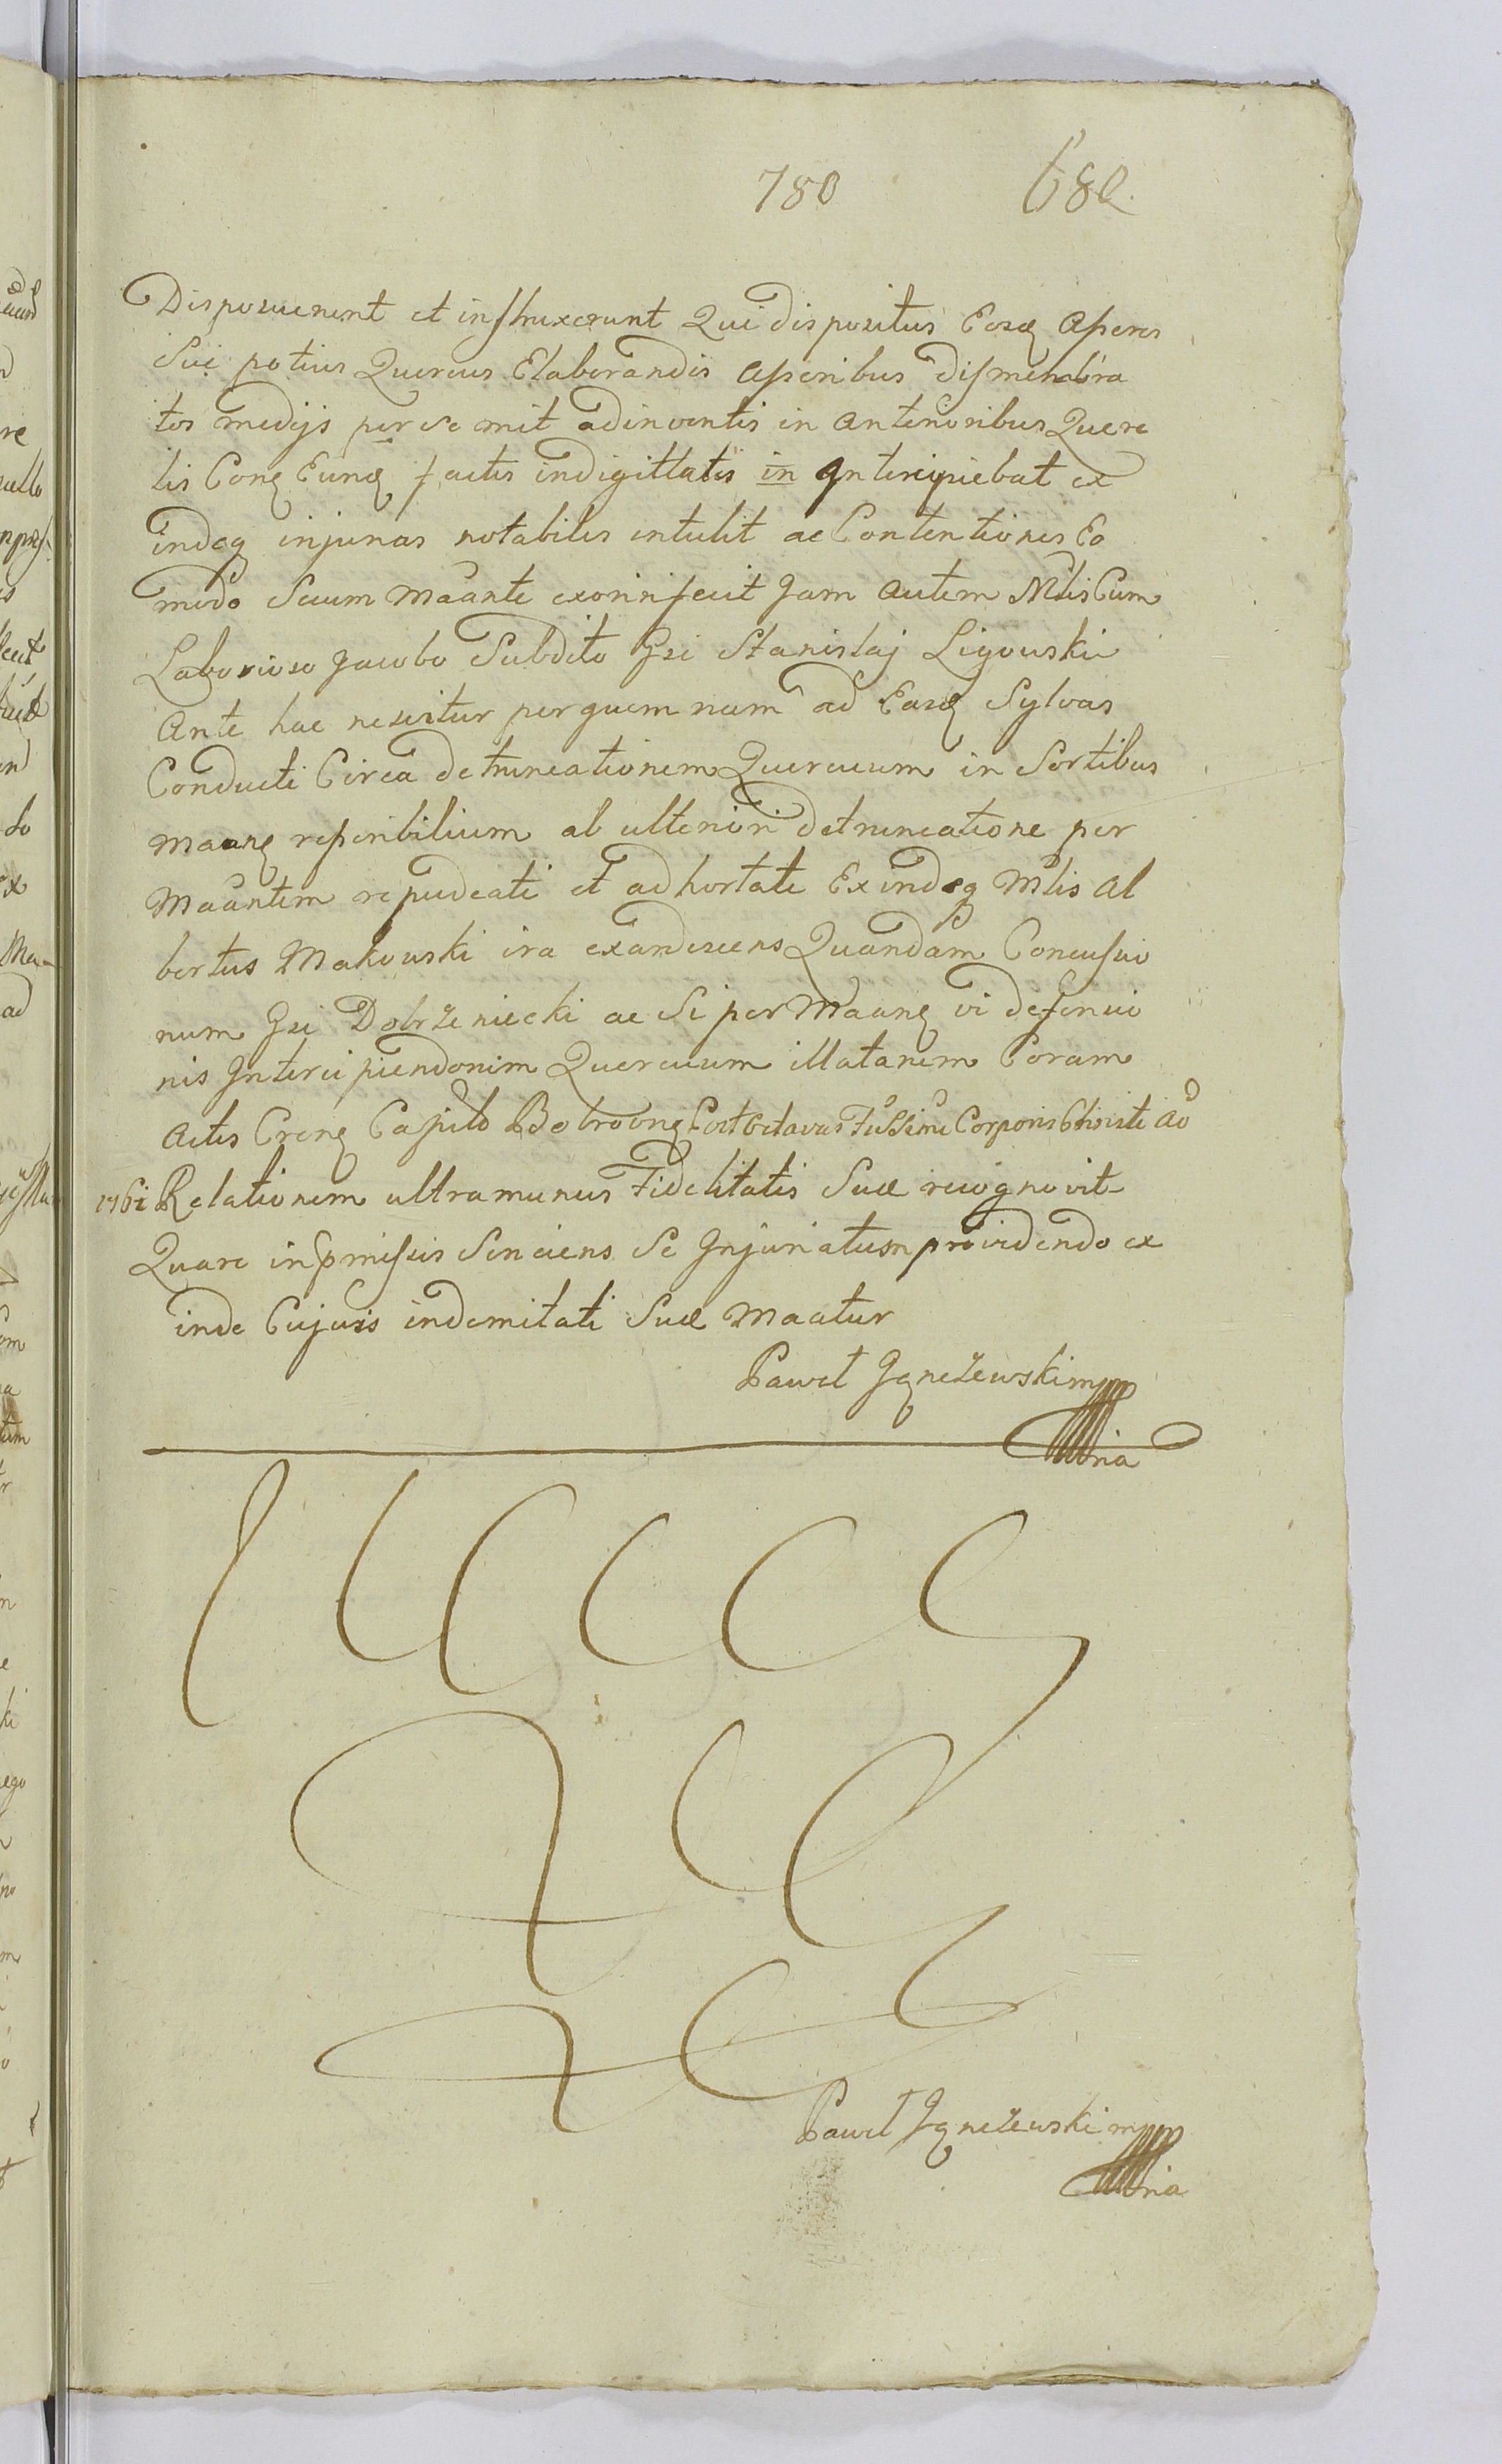 780 680.
Disposuerunt et instruxerunt Qui dispositus Eosq Asseres
Sive potius Quercus Elaborandis Asseribus dismembra
tos medijs per se met adinventis in Anterioribus Quere
lis Conq Eunq factis indigittatis in Intercipiebat ex
indeq injurias notabiles intulit ac Contentiones Eo
modo Secum Maante exoriri fecit Jam autem Nblis Cum
Laborioso Jacobo Subdito Gsi Stanislaj Ligowski
Ante hac nescitur per quem nam ad Easq Sylvas
Conducti Circa detruncationem Quercuum in Sortibus
Maanq reperibilium ab ulteriori detruncatione per
Maantem repudiati et adhortati Exindeq Nblis Al
bertus Makowski ira exandescens Quandam Concussio
num Gsi Dobrzeniecki ac Si per Maanq vi defensio
nis Intercipiendorum Quercuum illatarum Coram
Actis Crenq Capitl Post octavas Fussimi Corporis Christi Ao
1762 Relationem ultra munus Fidelitatis Suæ recognovit
Quare in pmissis Senciens Se Injuriatum providendo ex
inde Cujusvis indemnitati Suæ Maatur
Paweł mpp
ria
Paweł mpp
ria